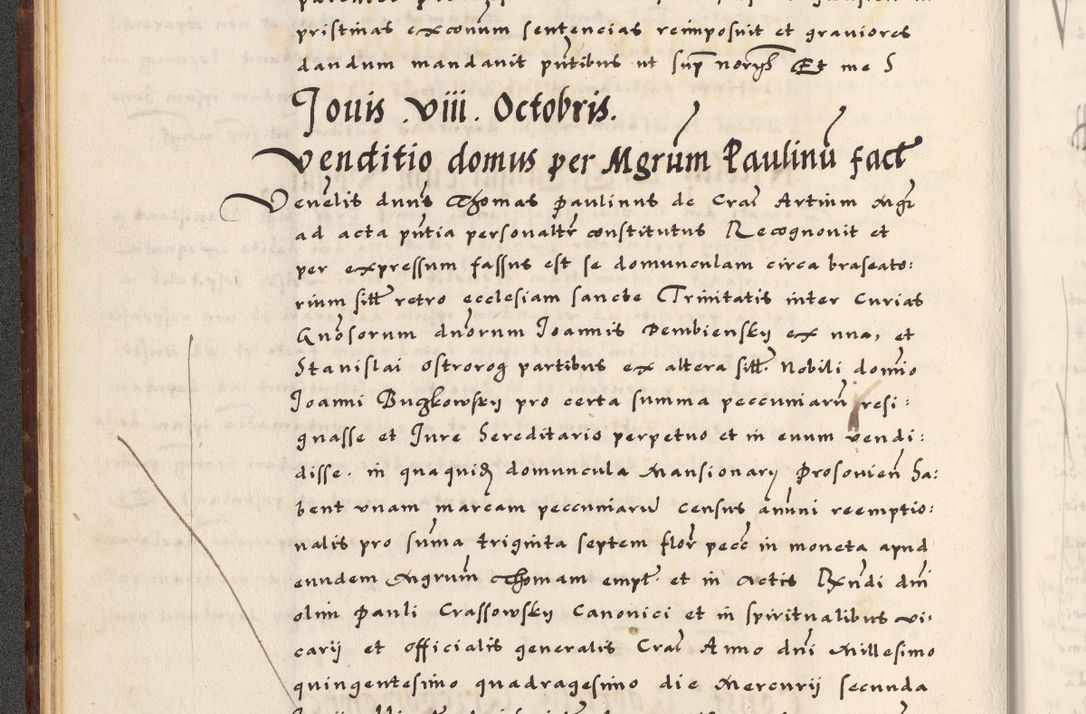 pristinas exconum sentencias reimposuit et graviores
dandum mandavit pntibus ut supr norgs Et me S
Jovis .viii. Octobris.
Venditio domus per Mgrum Paulinu fact
Venelis duns Thomas Paulinus de Crac Artium Mgr
ad acta pntia personaltr constitutus Recognovit et
per expressum fassus est se domunculam circa braseato:
rium sitt retro ecclesiam sancte Trinitatis inter Curias
Gnosorum dnorum Joannis Dembiensky ex una, et
Stanislai Ostrorog partibus ex altera sitt. Nobili domio
Joanni Buzkowsky pro certa summa peccuniaru resi:
gnasse et Jure hereditario perpetuo et in evum vendi:
disse. in qua quid domuncula Mansionarij Prosovien ha:
bent unam marcam peccuniaru census annui reemptio:
nalis pro suma triginta septem flor pecc in moneta apud
eundem Mgrum Thomam empt. et in Actis Rndi dni
olim Pauli Crassowsky Canonici et in spiritualibus vi:
carij et officialis generalis Crac Anno dni Millesimo
quingentesimo quadragesimo die Mercurij secunda